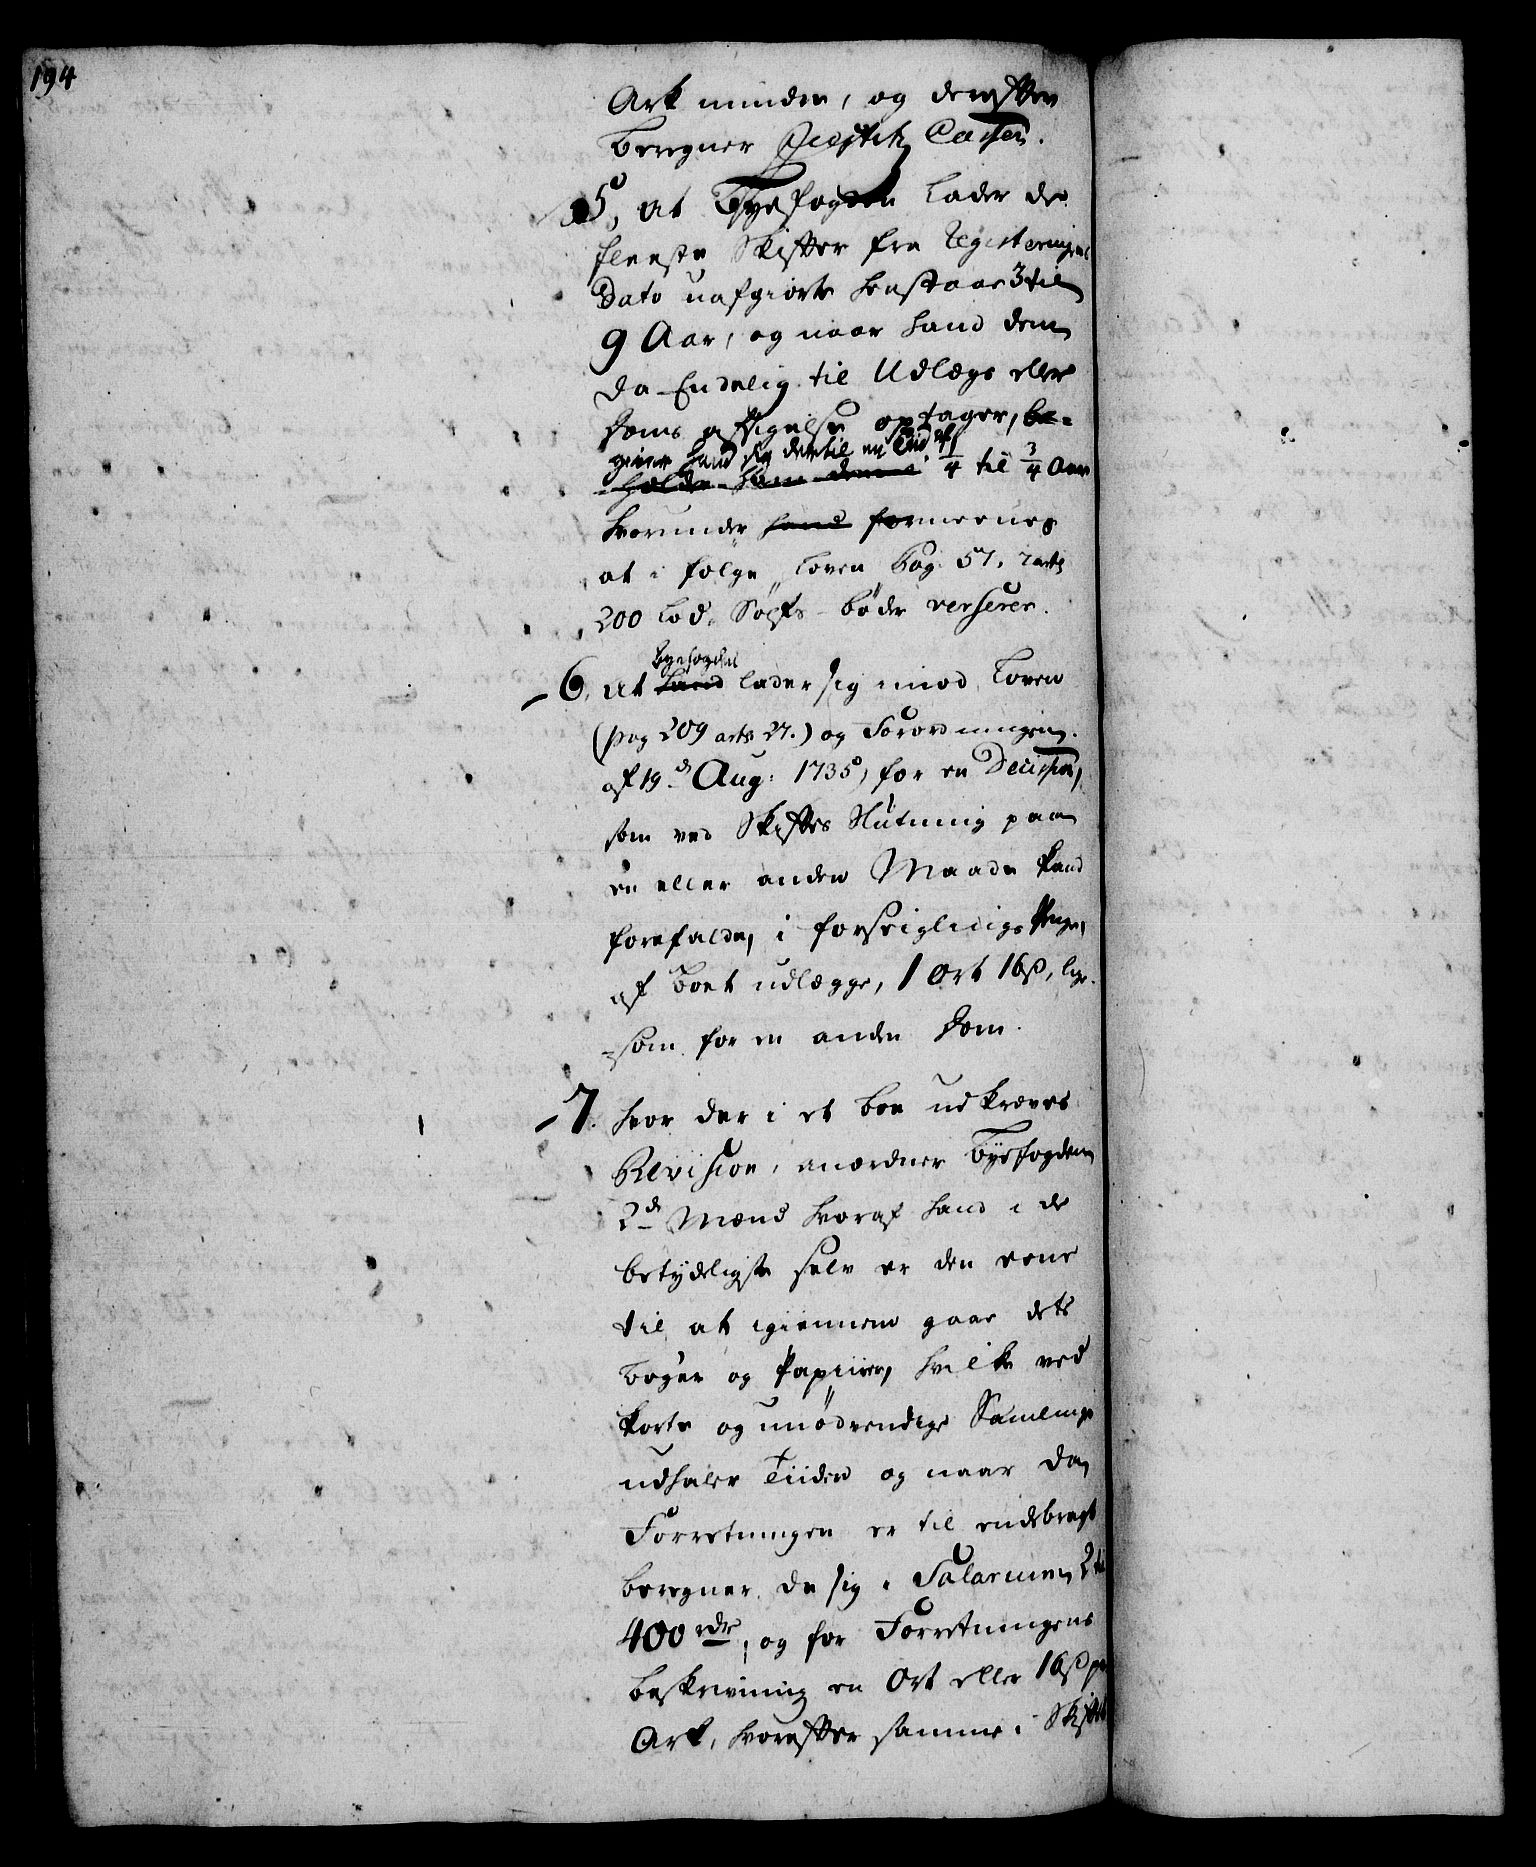 194
Ark minder, og derefter
beregner Justitz Cassen.
5, at Byefogden lader de
fleeste Skifter fra Registeringens
Dato uafgiorte henstaae 3 til
9 Aar, og naar hand dem
da Endelig til Udlægs eller
Doms afsigelse optager, be-
giver hand sig dertil en Tid af
holder ham denne 1/4 til 3/4 Aar
hvorunder hand formeenes
at i følge Loven Pag. 57, 7 artl
200 Lod Sølfs bøder verserer.
Byefogden
6. at hand lader sig imod Loven
(pag 209 artl 27.) og Forordningen
af 19.d Aug: 1735, for en Decision,
som ved Skiftes Slutning paa
en eller anden Maade kand
forefalde, i forseiglings Penge,
af Boet udlægge, 1 Ort 16 ß, lige-
-som for en anden Dom.
7. hvor der i et Boe udkræves
Revision, anordner Byefogden
2de Mænd hvoraf hand i de
betydeligste selv er den eene
til at igiennem gaae dets
bøger og Papiirer, hvilke ved
korte og unødvendige Samlinger
udhaler Tiiden og naar da
Forretningen er til endebragt
beregner de sig i Salarium 2 til
400 rdr, og for Forretningens
beskrivning en Ort eller 16 ß pr
Ark, hvorefter samme i Skiftet